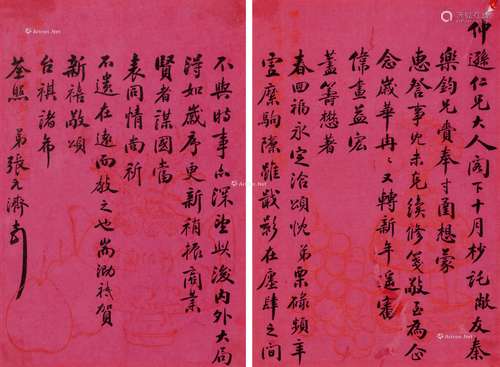 仲遜仁兄大人阁下十月杪託敝友秦
樂鈞兄賚奉寸函想蒙
惠詧事冗未克續修箋敬至為企
念歲華冉冉又轉新年遙審
偉畫益宏
藎籌懋著
春回福永定洽頌忱弟栗碌頻年
虛縻駒隙雖戢影在廛肆之間
不與時事亦深望此後內外大局
得如歲序更新稍振商業
賢者謀國當
表同情尚祈
不遺在遠而教之也耑泐祗賀
新禧敬頌
台祺諸希
荃照 弟張元濟